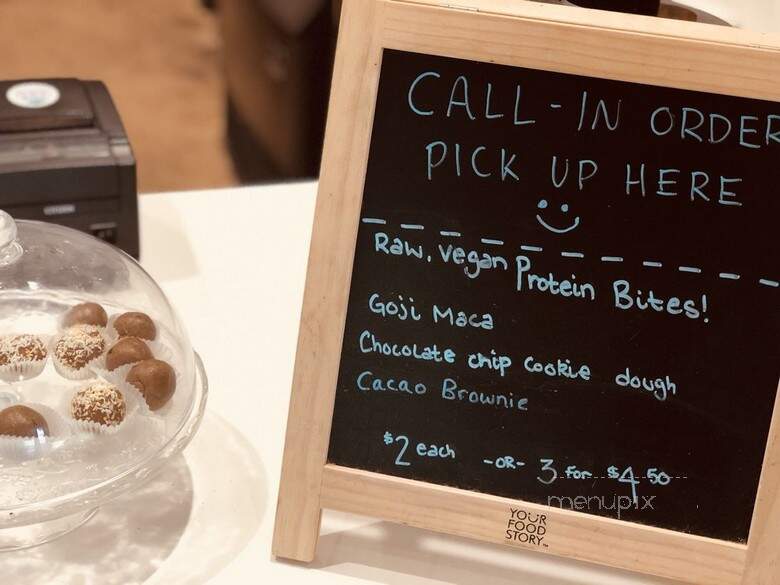 CALL-IN ORDER
PICK UP HERE
Raw, vegan Protein Bites!
Goji Maca
Chocolate chip cookie dough
Cacao Brownie
$2 each -OR- 3 for $4.50
menupix
YOUR
FOOD
STORY